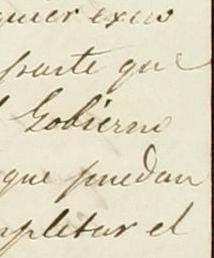 quier exis
parte que
l Gobierno
que puedan
mpletar el